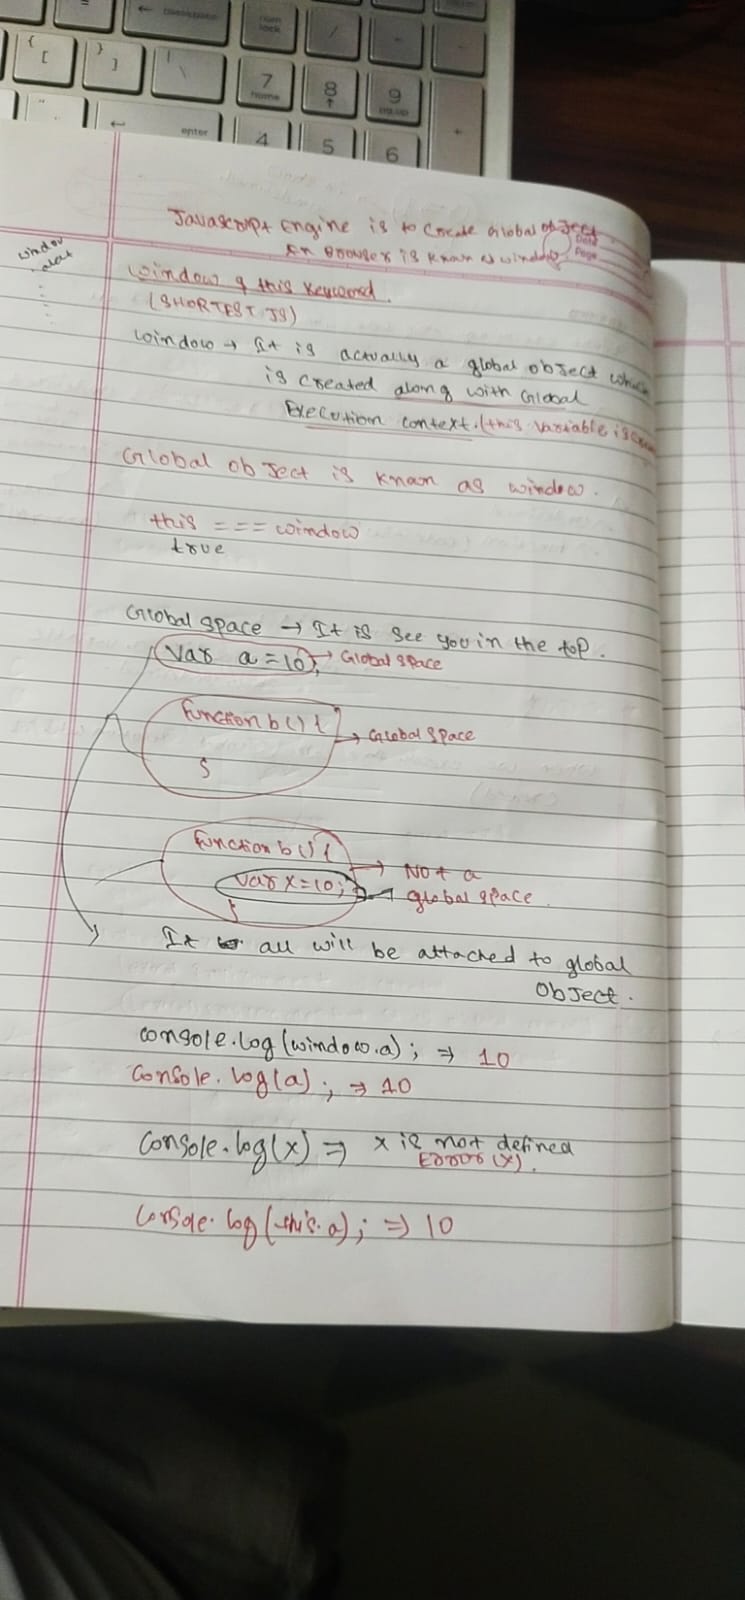 Javascript Engine is to Create Global object
In Browser is known as window
window
window & this keyword.
(SHORTEST JS)
window → It is actually a global object which
is created along with Global
Execution context. (this variable is
Global object is known as window.
this === window
true
Global space → It is see you in the top.
var a = 10; → Global space
function b() {
→ Global space
}
function b() {
→ Not a
var x = 10;
global space
}
It all will be attached to global
object.
console.log(window.a); ⇒ 10
console.log(a); ⇒ 10
console.log(x) ⇒ x is not defined
Error (x).
console.log(this.a); ⇒ 10
{
[
}
]
|
\
enter
num
lock
/
-
7
home
8
↑
9
pg up
+
4
5
6
Date
Page